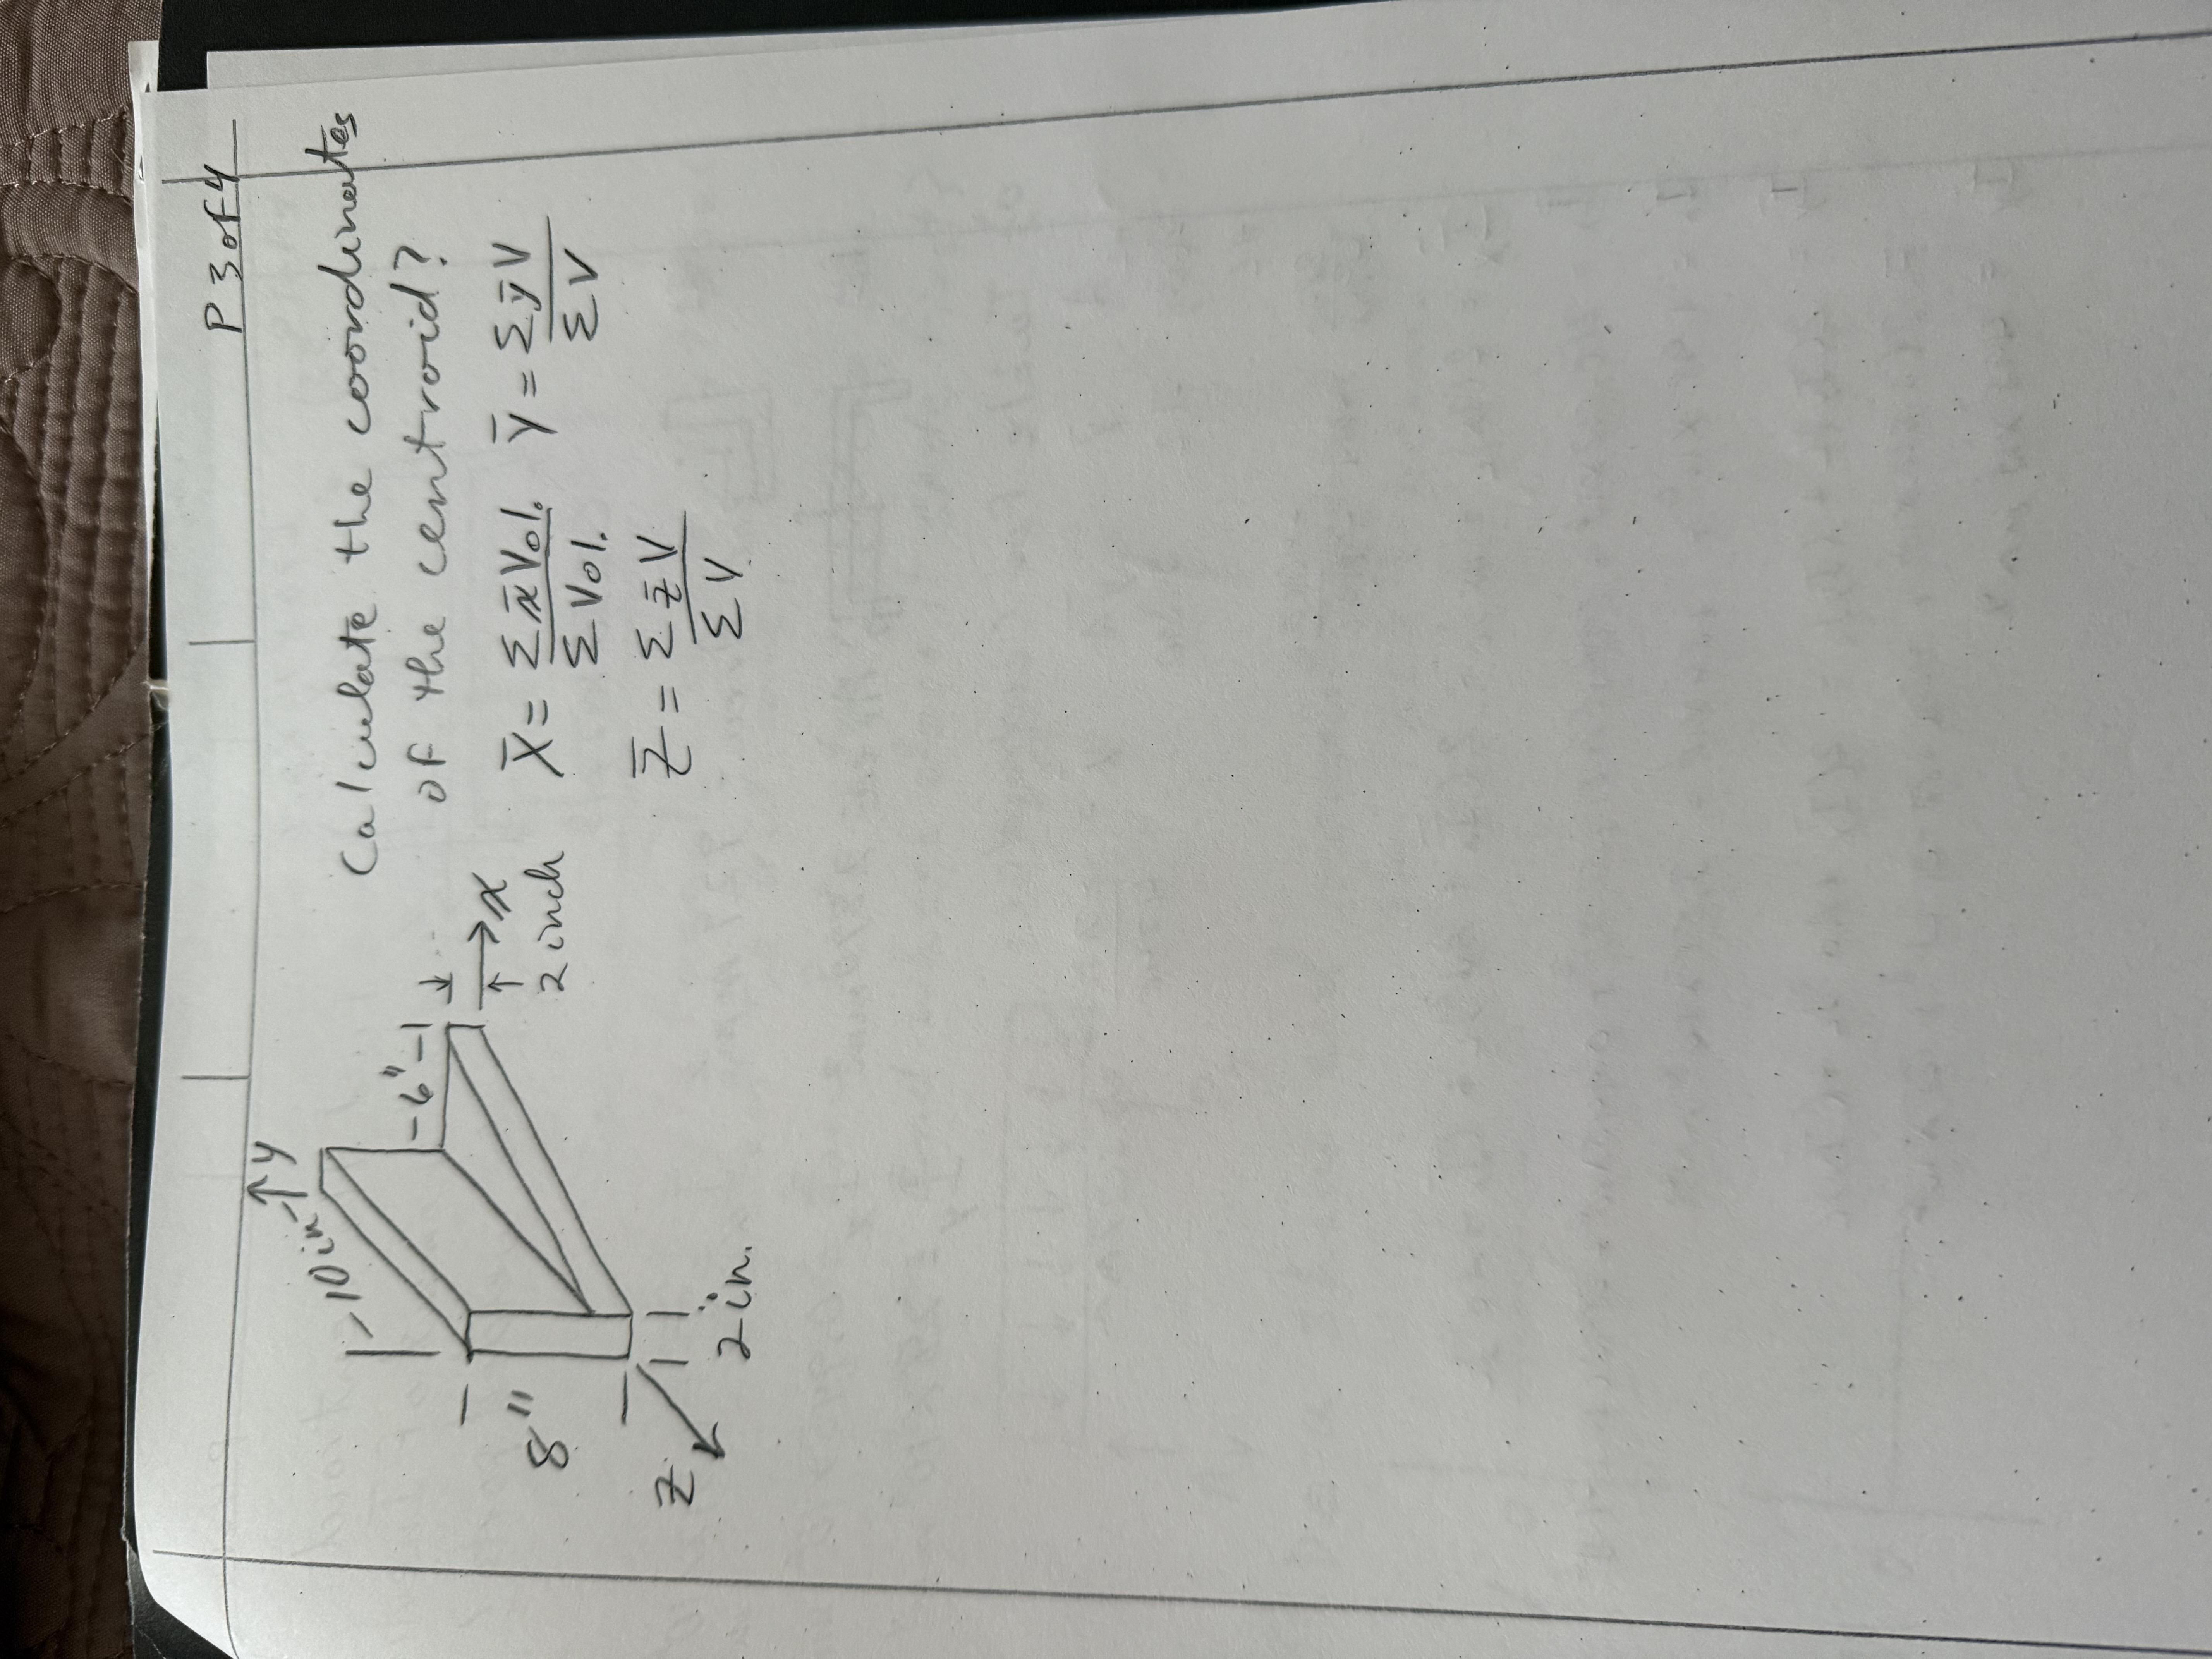 P 3 of 4
Calculate the coordinates
of the centroid?
X̄ = Σ x̄ Vol. / Σ Vol.   Ȳ = Σ ȳ V / Σ V
Z̄ = Σ z̄ V / Σ V
y
10 in
6"
x
2 inch
8"
z
2 in.